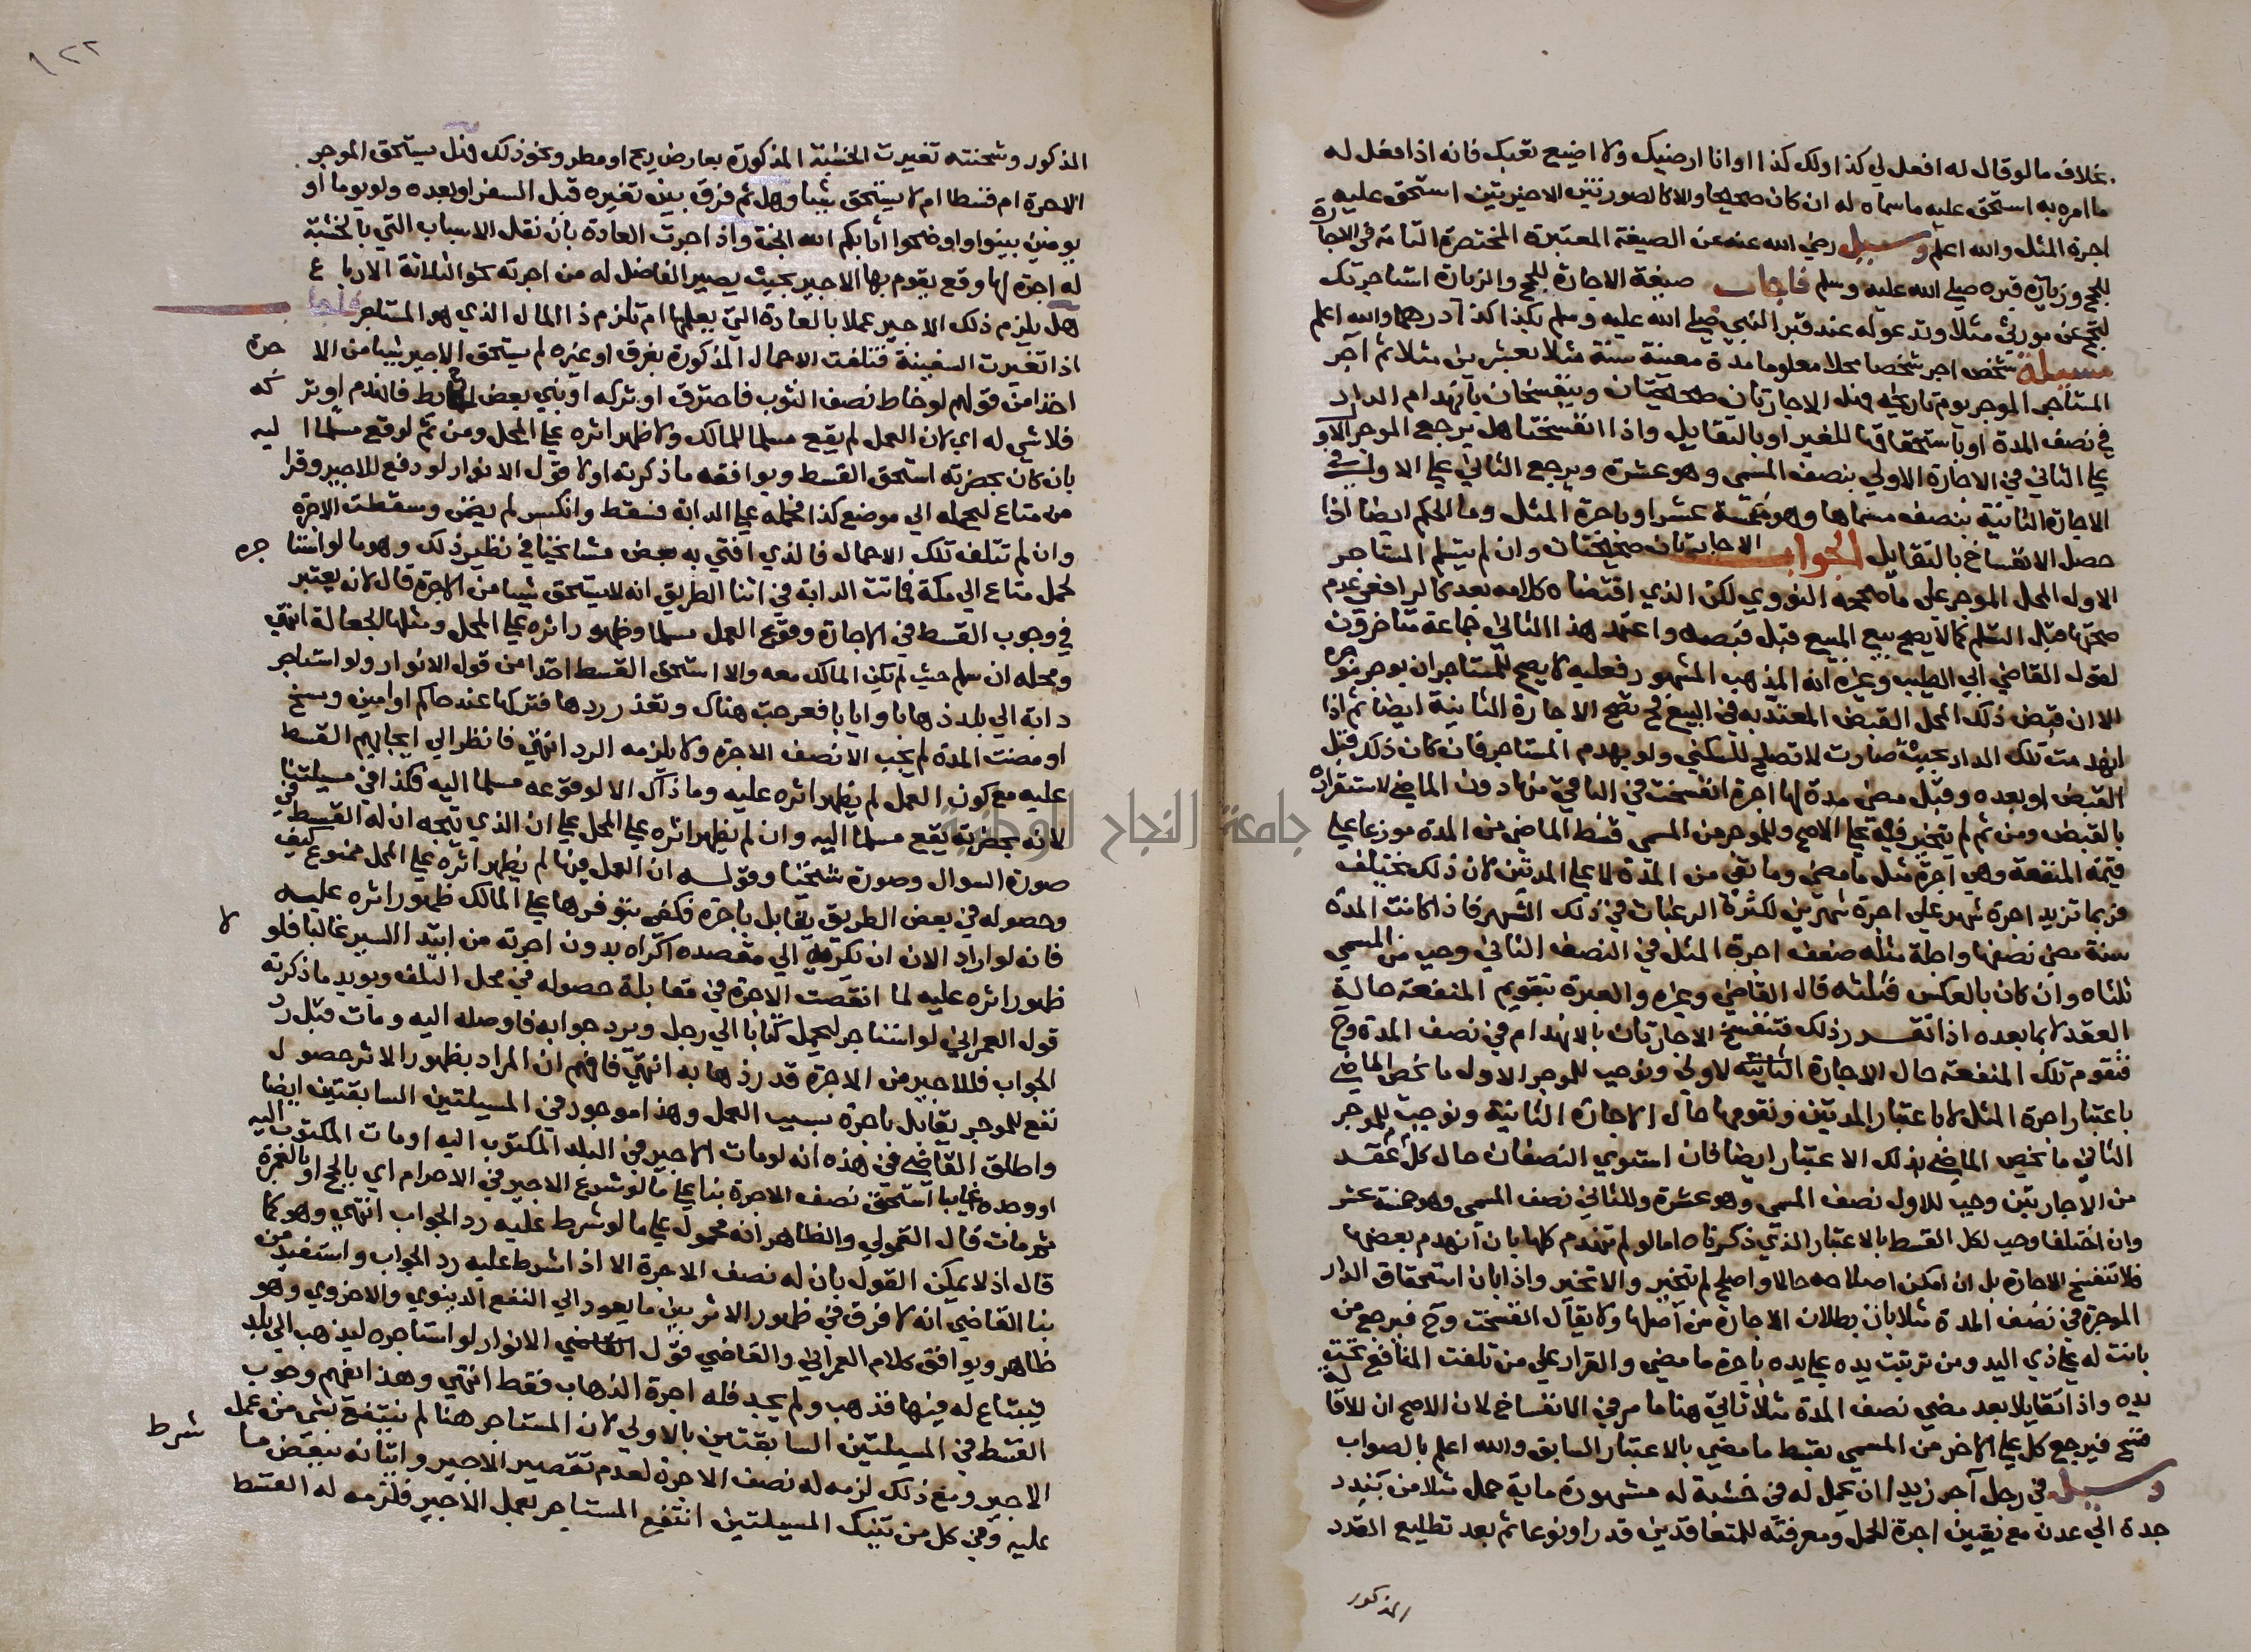 بخلاف ما لو قال له افعل لي كذا ولك كذا او انا ارضيك ولا اضيع تعبك فانه اذا فعل له
ما امره به استحق عليه ما سماه له ان كان صحيحا والا كالصورتين الاخيرتين استحق عليه
اجرة المثل والله اعلم وسيل رضي الله عنه عن الصيغة المعتبرة المختصرة التامة في الاجارة
للحج وزيارة قبره صلى الله عليه وسلم فاجاب صيغة الاجارة للحج والزيارة استاجرتك
لتحج عن مورثي مثلا وتدعو له عند قبر النبي صلى الله عليه وسلم بكذا كذا درهما والله اعلم
مسيلة شخص اجر شخصا محلا معلوما مدة معينة سنة مثلا بعشرين مثلا ثم آجر
المستاجر الموجر يوم تاريخه فهل الاجارتان صحيحتان وينفسخان بانهدام الدار
في نصف المدة او باستحقاقها للغير او بالتقايل واذا انفسختا هل يرجع الموجر الاول
علي الثاني في الاجارة الاولي بنصف المسمي وهو عشرة ويرجع الثاني علي الاول في
الاجارة الثانية بنصف مسماها وهو خمسة عشر او باجرة المثل وما الحكم ايضا اذا
حصل الانفساخ بالتقايل الجواب الاجارتان صحيحتان وان لم يتسلم المستاجر
الاول المحل الموجر علي ما صححه النووي لكن الذي اقتضاه كلامه بعد كالرافعي عدم
صحتها قبل التسلم كما لا يصح بيع المبيع قبل قبضه واعتمد هذا الثاني جماعة متاخرون
لقول القاضي ابي الطيب وغيره انه المذهب المشهور فعليه لا يصح للمستاجر ان يوجر موجره
الا ان قبض ذلك المحل القبض المعتد به في البيع ثم تصح الاجارة الثانية ايضا ثم اذا
انهدمت تلك الدار بحيث صارت لا تصلح للسكني ولو بهدم المستاجر فان كان ذلك قبل
القبض او بعده وقبل مضي مدة لها اجرة انفسخت في الباقي منها دون الماضي لاستقراره
بالقبض ومن ثم لم يتخير فيه علي الاصح وللموجر من المسمي قسط الماضي من المدة موزعا علي
قيمة المنفعة وهي اجرة مثل ما مضي وما بقي من المدة لا علي المدتين لان ذلك يختلف
فربما تزيد اجرة شهر علي اجرة شهرين لكثرة الرغبات في ذلك الشهر فاذا كانت المدة
سنة مضي نصفها واجرة مثله ضعف اجرة المثل في النصف الثاني وجب من المسمي
ثلثاه وان كان بالعكس فثلثه قال القاضي وغيره والعبرة بتقويم المنفعة حالة
العقد لا بما بعده اذا تقرر ذلك فتنفسخ الاجارتان بالانهدام في نصف المدة وح
فتقوم تلك المنفعة حال الاجارة الاولي ونوجب للموجر الاول ما يخص الماضي
باعتبار اجرة المثل لا باعتبار المدتين ونقومها حال الاجارة الثانية ونوجب للموجر
الثاني ما يخص الماضي بذلك الاعتبار ايضا فان استوي النصفان حال كل عقد
من الاجارتين وجب للاول نصف المسمي وهو عشرة وللثاني نصف المسمي وهو خمسة عشر
وان اختلفا وجب لكل القسط بالاعتبار الذي ذكرناه اما لو لم تنهدم كلها بان انهدم بعضها
فلا تنفسخ الاجارة بل ان امكن اصلاحه حالا واصلح لم يتخير والا تخير واذا بان استحقاق الدار
الموجرة في نصف المدة مثلا بان بطلان الاجارة من اصلها ولا يقال انفسخت وح فيرجع من
بانت له علي ذي اليد ومن ترتبت يده علي يده باجرة ما مضي والقرار علي من تلفت المنافع تحت
يده واذا تقايلا بعد مضي نصف المدة مثلا تاتي هنا ما مر في الانفساخ لان الاصح ان الاقالة
فسخ فيرجع كل علي الاخر من المسمي بقسط ما مضي بالاعتبار السابق والله اعلم بالصواب
وسيل في رجل آجر زيدا ان يحمل له في خشبة له مشهورة ماية حمل مثلا من بندر
جدة الي عدن مع تعيين اجرة الحمل ومعرفته للمتعاقدين قدرا ونوعا ثم بعد تطليع القدر
المذكور
١٢٢
المذكور وشحنته تغيرت الخشبة المذكورة بعارض ريح او مطر ونحو ذلك فهل يستحق الموجر
الاجرة ام قسطا ام لا يستحق شيا وهل ثم فرق بين تغيره قبل السفر او بعده ولو يوما او
يومين بينوا واوضحوا اثابكم الله الجنة واذا جرت العادة بان نقل الاسباب التي بالخشبة
له اجرة لها وقع يقوم بها الاجير بحيث يصير الفاضل له من اجرته نحو الثلاثة الارباع
هل يلزم ذلك الاجير عملا بالعادة التي يعلمها ام تلزم ذا المال الذي هو المستاجر فاجاب
اذا تغيرت السفينة فتلفت الاحمال المذكورة بغرق او غيره لم يستحق الاجير شيا من الاجرة
اخذا من قولهم لو خاط نصف الثوب فاحترق او تركه او بني بعض الحايط فانهدم او تركه
فلا شي له اي لان العمل لم يقع مسلما للمالك ولا ظهر اثره علي المحل ومن ثم لو وقع مسلما اليه
بان كان بحضرته استحق القسط ويوافقه ما ذكرته اولا قول الانوار لو دفع للاجير وقرا
من متاع ليحمله الي موضع كذا فحمله علي الدابة فسقط وانكسر لم يضمن وسقطت الاجرة
وان لم تتلف تلك الاحمال فالذي افتي به بعض مشايخنا في نظير ذلك وهو ما لو استاجره
لحمل متاع الي مكة فماتت الدابة في اثنا الطريق انه لا يستحق شيا من الاجرة قال لانه يعتبر
في وجوب القسط في الاجارة وقوع العمل مسلما وظهور اثره علي المحل ومثلها الجعالة انتهي
ومحله ان سلم حيث لم يكن المالك معه والا استحق القسط اخذا من قول الانوار ولو استاجر
دابة الي بلد ذهابا وايابا فعرجت هناك وتعذر ردها فتركها عند حاكم او امين وفسخ
او مضت المدة لم يجب الا نصف الاجرة ولا يلزمه الرد انتهي فانظر الي ايجابهم القسط
عليه مع كون العمل لم يظهر اثره عليه وما ذاك الا لوقوعه مسلما اليه فكذا في مسيلتنا
لانه بحضرته يقع مسلما اليه وان لم يظهر اثره علي المحل علي ان الذي يتجه ان له القسط في
صورة السوال وصورة شيخنا وقوله ان العمل فيها لم يظهر اثره علي المحل ممنوع كيف
وحصوله في بعض الطريق يقابل باجرة فكفي بتوفرها علي المالك ظهور اثره عليه
فانه لو اراد الان ان يكريه الي مقصده اكراه بدون اجرته من ابتدا السير غالبا فلولا
ظهور اثره عليه لما انقصت الاجرة في مقابلة حصوله في محل التلف ويويد ما ذكرته
قول العمراني لو استاجر ليحمل كتابا الي رجل ويرد جوابه فاوصله اليه ومات قبل رد
الجواب فللاجير من الاجرة قدر ذهابه انتهي فافهم ان المراد بظهور الاثر حصول
نفع للموجر يقابل باجرة بسبب العمل وهذا موجود في المسيلتين السابقتين ايضا
واطلق القاضي في هذه انه لو مات الاجير في البلد المكتوب اليه او مات المكتوب اليه
او وجده غايبا استحق نصف الاجرة بنا علي ما لو شرع الاجير في الاحرام اي بالحج او بالعمرة
ثم مات قال القمولي والظاهر انه محمول علي ما لو شرط عليه رد الجواب انتهي وهو كما
قال اذ لا يمكن القول بان له نصف الاجرة الا اذا شرط عليه رد الجواب واستفيد من
بنا القاضي انه لا فرق في ظهور الاثر بين ما يعود الي النفع الدنيوي والاخروي وهو
ظاهر ويوافق كلام العمراني والقاضي قول الانوار لو استاجره ليذهب الي بلد
فيبتاع له فيها فذهب ولم يجد فله اجرة الذهاب فقط انتهي وهذا يفهم وجوب
القسط في المسيلتين السابقتين بالاولي لان المستاجر هنا لم ينتفع بشي من عمل
الاجير ومع ذلك لزمه له نصف الاجرة لعدم تقصير الاجير واتيانه ببعض ما شرط
عليه وفي كل من تينك المسيلتين انتفع المستاجر بعمل الاجير فلزمه له القسط
جامعة النجاح الوطنية